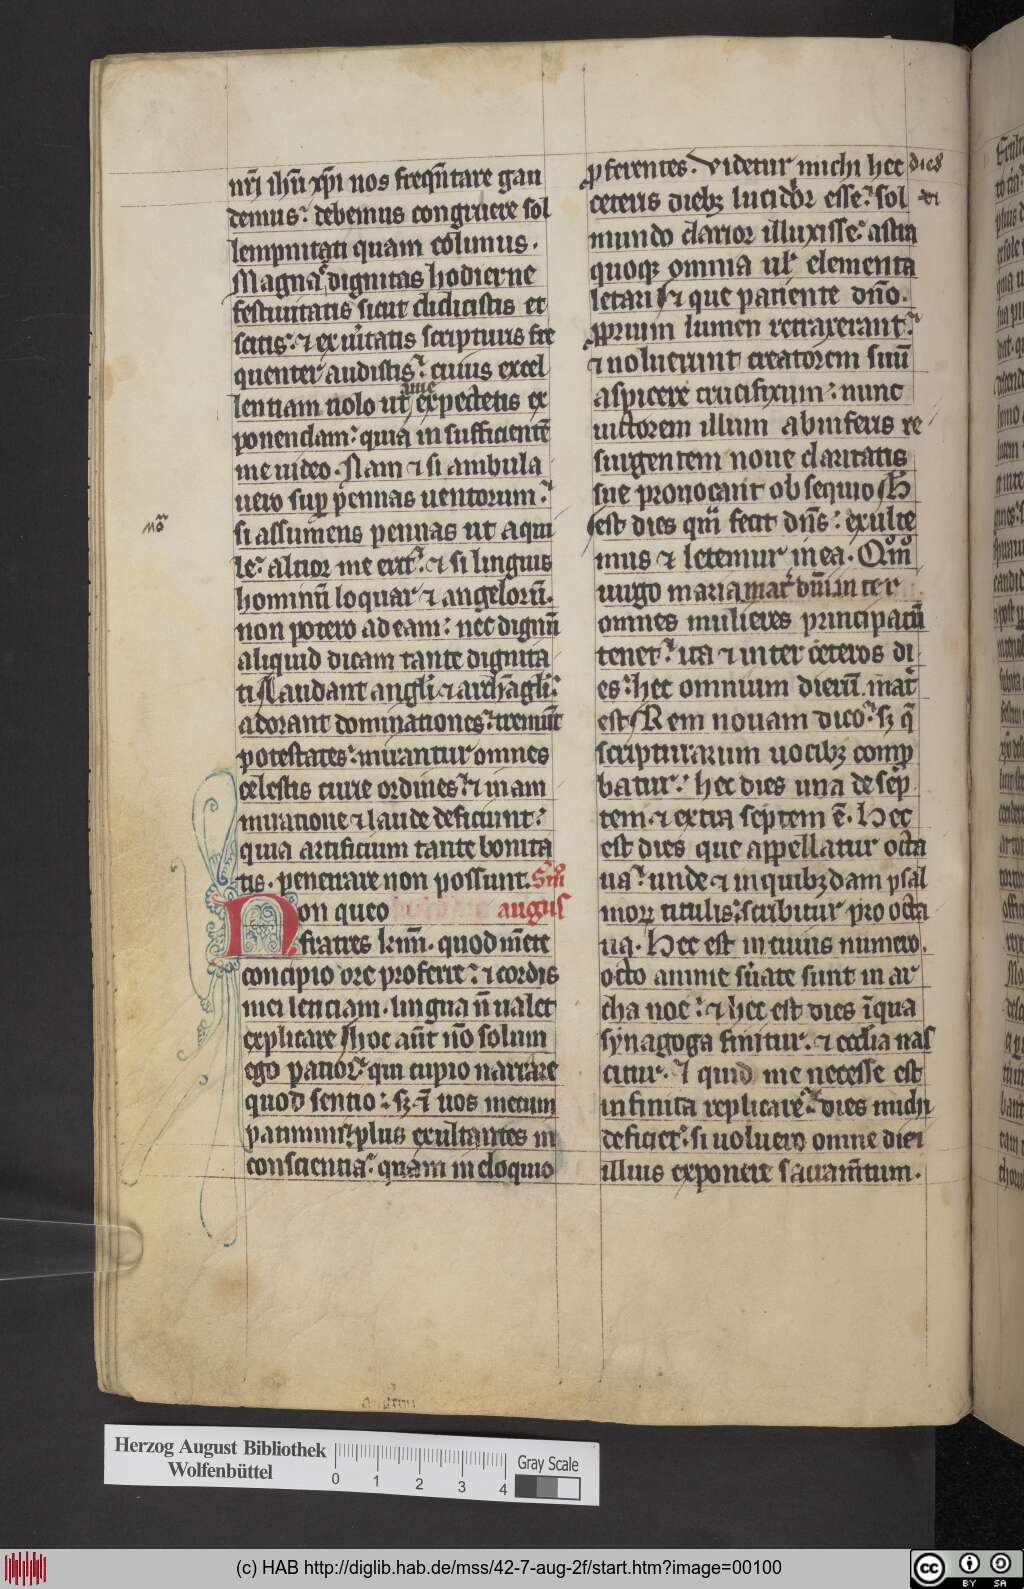 nr̄i ih̄u xp̄i nos freqn̄tare gau
demus: debemus congruere sol
lempnitati quam colimus.
Magna dignitas hodierne
festiuitatis sicut didicistis et
scitis: ⁊ ex ūitatis scripturis fre
quenter audistis: cuius excel
lentiam nolo ut a me expectetis ex
ponendam: quia insufficientē
me uideo. Nam ⁊ si ambula
uero sup pennas uentorum:
si assumens pennas ut aqui
le: altior me erit: ⁊ si linguis
hominū loquar ⁊ angelorū.
non potero ad eam: nec dignū
aliquid dicam tante dignita
ti Laudant angli ⁊ archāgli:
adorant dominationes: tremūt
potestates: mirantur omnes
celestis curie ordines: ⁊ in am
miratione ⁊ laude deficiunt:
quia artificium tante bonita
tis. penetrare non possunt. Smō
Non queo augus
fratres km̄i. quod m̄ete
concipio ore proferre: ⁊ cordis
mei leticiam. lingua ñ ualet
explicare hoc aūt nō solum
ego patior: qui cupio narrare
quod sentio: sꝫ ⁊ uos mecum
patimini: plus exultantes in
conscientia: quam in eloquio
ꝓferentes. Videtur michi hec dies
ceteris diebꝫ lucidior esse: sol
mundo clarior illuxisse: astra
quoqꝫ omnia ul' elementa
letari ⁊ que patiente dn̄o.
ꝓprium lumen retraxerant:
⁊ noluerunt creatorem suū
aspicere crucifixum: nunc
uictorem illum ab inferis re
surgentem noue claritatis
sue prouocant obsequio H
est dies quā fecit dn̄s: exulte
mus ⁊ letemur in ea. Qm̄o
uirgo maria mat' dn̄i inter
omnes mulieres principatū
tenet: ita ⁊ inter ceteros di
es: hec omnium dierū mat'
est Rem nouam dico: sꝫ q̄
scripturarum uocibꝫ comp
batur: hec dies una de sep
tem. ⁊ extra septem ē. Hec
est dies que appellatur octa
ua: unde ⁊ in quibꝫdam psal
moꝝ titulis: scribitur pro octa
ua. Hec est in cuius numero.
octo anime s̄uate sunt in ar
cha noe: ⁊ hec est dies ī qua
synagoga finitur. ⁊ ecclia nas
citur. ⁊ quid me necesse est
infinita replicare: dies michi
deficiet: si uoluero omne diei
illius exponere sacram̄tum.
Herzog August Bibliothek
Wolfenbüttel
0 1 2 3 4
Gray Scale
(c) HAB http://diglib.hab.de/mss/42-7-aug-2f/start.htm?image=00100
cc BY SA